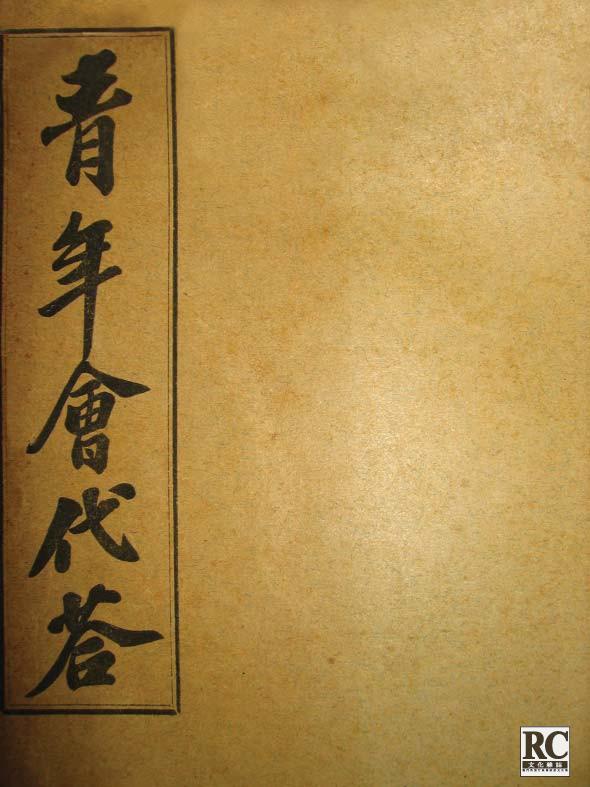 青年會代荅
RC
文化雜誌